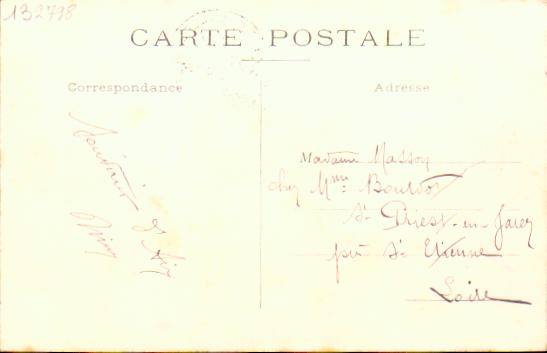 132798
CARTE POSTALE
Correspondance
Souvenir d'Aix
Adresse
Madame Masson
chez Mme Bourdot
St Priest-en-Jarez
près St Etienne
Loire